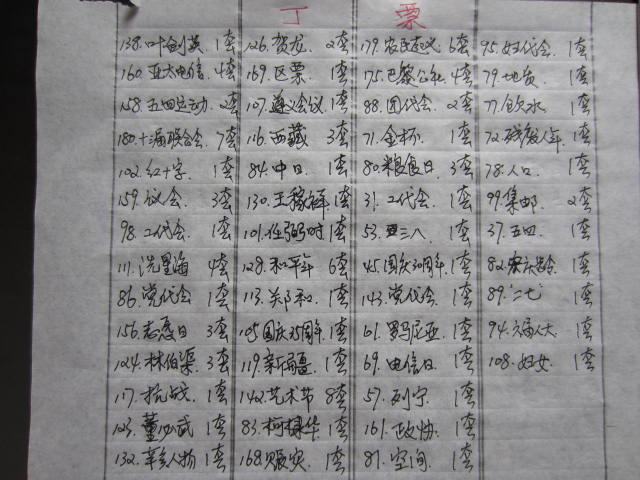 丁 票
138.叶剑英 1套 126.贺龙 2套 179.农民起义 6套 95.妇代会 1套
160.亚太电信 4套 169.区票 1套 175.巴黎公社 4套 79.地质 1套
158.五四运动 2套 107.遵义会议 1套 88.团代会 2套 77.饮水 1套
180.十届联合会 7套 116.西藏 3套 71.金杯 1套 72.残废人年 1套
102.红十字 1套 84.中日 1套 80.粮食日 3套 78.人口 1套
159.议会 3套 130.王稼祥 1套 31.工代会 1套 99.集邮 2套
98.工代会 1套 101.任弼时 1套 53.三八 1套 37.五四 1套
111.冼星海 4套 128.和平年 6套 45.国庆30周年 1套 82. 1套
86.党代会 1套 113.郑和 1套 143.党代会 1套 89.“二七” 1套
156.志愿日 3套 105国庆35周年 1套 61.罗马尼亚 1套 94.六届人大 1套
124.林伯渠 3套 119.新疆 1套 69.电信日 1套 108.妇女 1套
117.抗战 1套 142.艺术节 8套 57.列宁 1套
123.董必武 1套 83.柯棣华 1套 161.政协 1套
132.辛亥人物 1套 168.赈灾 1套 81.空间 1套